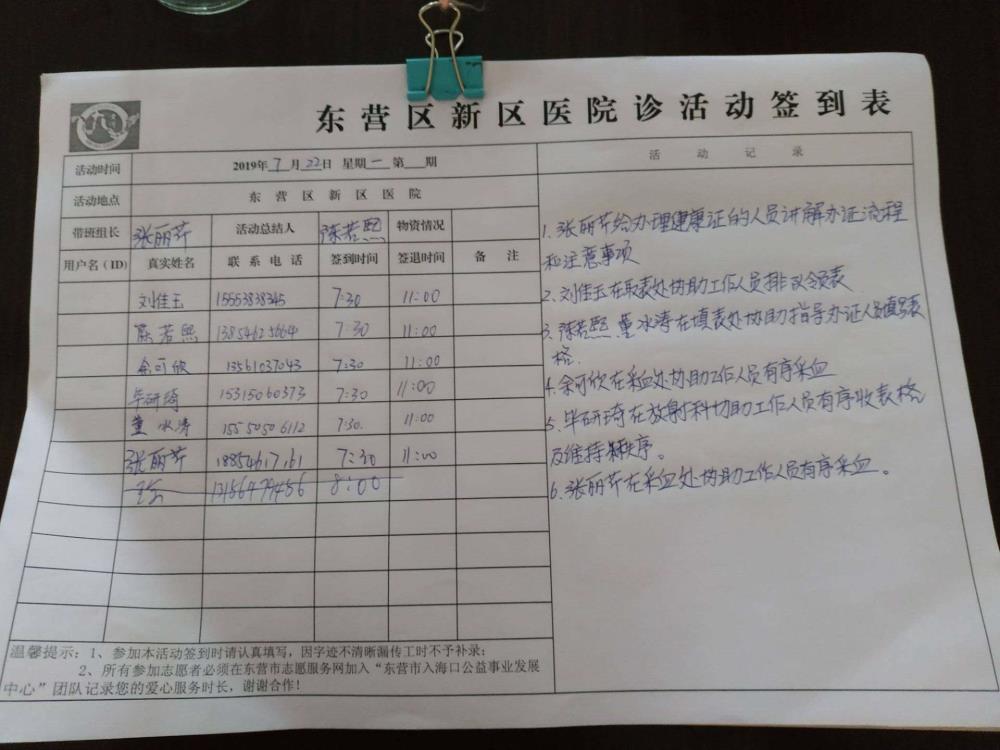 东营区新区医院诊活动签到表
活动时间 2019年7月22日 星期一 第 期 活动记录
活动地点 东营区新区医院
带班组长 张丽芹 活动总结人 陈若熙 物资情况
用户名(ID) 真实姓名 联系电话 签到时间 签退时间 备注
刘佳玉 15553838345 7:30 11:00
陈若熙 13854625664 7:30 11:00
余可欣 13561037043 7:30 11:00
毕研琦 15315060373 7:30 11:00
董水涛 15550506112 7:30. 11:00
张丽芹 18854617161 7:30 11:00
13156479456 8:00
1.张丽芹给办理健康证的人员讲解办证流程
和注意事项
2.刘佳玉在取表处协助工作人员排队领表
3.陈若熙.董水涛在填表处协助指导办证人员填写表
格.
4.余可欣在采血处协助工作人员有序采血
5.毕研琦在放射科协助工作人员有序收表格
及维持秩序。
6.张丽芹在采血处协助工作人员有序采血。
温馨提示:1、参加本活动签到时请认真填写,因字迹不清晰漏传工时不予补录;
2、所有参加志愿者必须在东营市志愿服务网加入“东营市入海口公益事业发展
中心”团队记录您的爱心服务时长,谢谢合作!